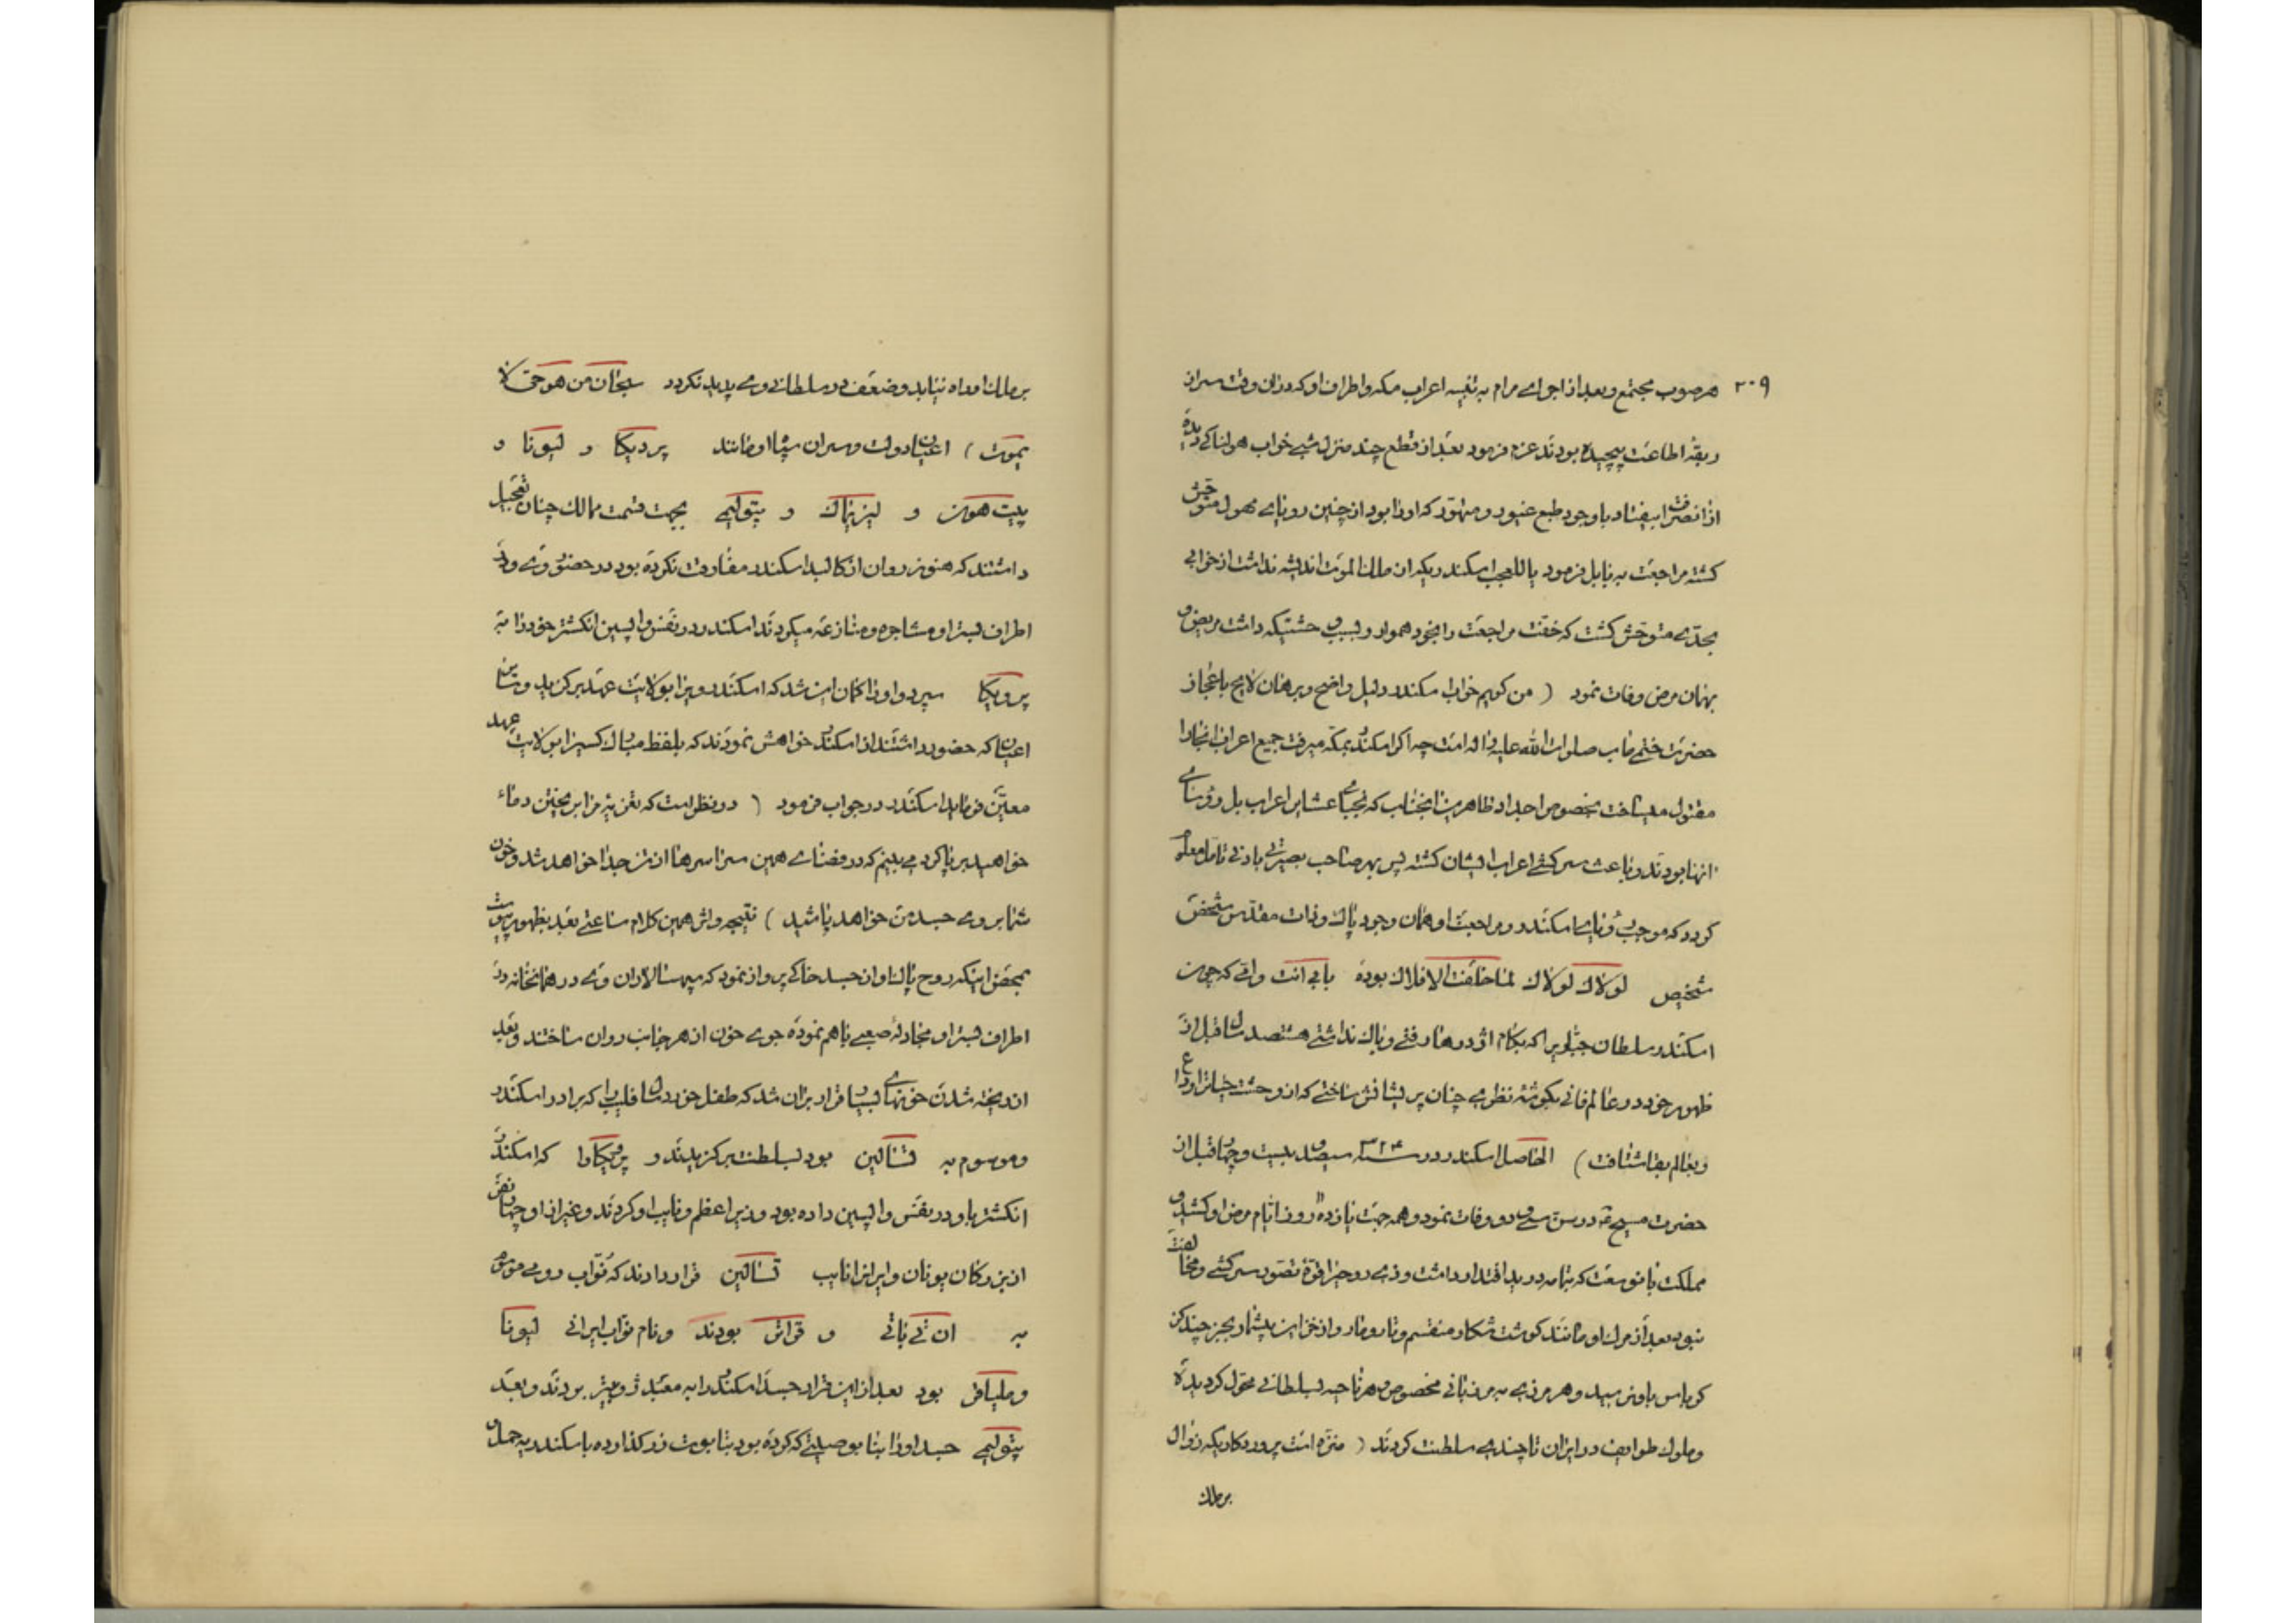 ۲۰۹
هر صوب مجتمع و بعد از اجرای مرام به تنبیه اعراب مکه و اطراف او که در ان وقت سر از
ربقهٔ اطاعت پیچیده بودند عزم فرمود بعد از قطع چند منزل شبی خواب هولناکی دیده
از ان تصرف بیفتاد با وجود طبع غیور و متهور که او را بود از چنین رویای مهول متوحش
کشته مراجعت به بابل فرمود یا للعجب اسکندریکه از ملک الموت اندیشه نداشت از خوابی
بحدی متوحش کشت که خفت مراجعت را بخود هموار و بسبب وحشتیکه داشت مریض و
بهمان مرض وفات نمود ( من کویم خواب اسکندر دلیل واضح و برهان لایح باعجاز
حضرت ختمی ماب صلوات الله علیه واله است چه اگر اسکندر بمکه میرفت جمیع اعراب انجا را
مقتول میساخت بخصوص اجداد طاهرین انجناب که نجبای عشایر اعراب بل رؤسای
انها بودند و باعث سرکشی اعراب ایشان کشته پس بهر صاحب بصیرتی بادنی تامل معلوم
کردد که موجب رویای اسکندر و مراجعت او همان وجود پاک و ذات مقدس مشخص
شخیص لولاک لولاک لما خلقت الافلاک بوده بابی انت وامی که چون
اسکندر سلطان جباریرا که بکام اژدرها رفتی و باک نداشتی هشتصد سال قبل از
ظهور خود در عالم فانی بکوشهٔ نظری چنان پریشانش ساختی که از وحشت حیات را وداع
و بعالم بقا شتافت ) الحاصل اسکندر در سنه ۳۲۴ سیصد و بیست و چهار قبل از
حضرت مسیح ع در سن سی و دو وفات نمود و همه جهت یازده روز ایام مرض او کشید و
مملکت بانوسعت که بتمامه در ید اقتدار داشت و ذی روحیرا قوهٔ تصور سرکشی و مخالفت
نبود بعد از مرک او مانند کوشت شکار منقسم و تار و مار و از خزاین بیشمار بجز چند کز
کرباس باو نرسید و هر مرزی به مرزبانی مخصوص و هر ناحیه بسلطانی محول کردیده
و ملوک طوایف در ایران تا چندی سلطنت کردند ( منزه است پروردکاریکه زوال
بر ملک
بر ملک او راه نیابد و ضعف در سلطانی وی پدید نکردد سبحان من هو حی لا
یموت ) اعیان دولت و سران سپاه او مانند پردیکا و لیونا و
پیت هون و لیزیماک و پتولیمی بجهت قسمت ممالک چنان تعجیل
داشتند که هنوز روان از کالبد اسکندر مفارقت نکرده بود در حضور وی و در
اطراف بستر او مشاجره و منازعه میکردند اسکندر در نفس واپسین انکشتر خود را به
پردیکا سپرد و او را کمان این شد که اسکندر ویرا بولایت عهد برکزید و سایر
اعیان که حضور داشتند از اسکندر خواهش نمودند که بلفظ مبارک کسیرا بولایت عهد
معین فرماید اسکندر در جواب فرمود ( در نظر است که تعزیهٔ مرا بریختن دماء
خواهید برپا کرد می بینم که در فضای همین سرا سرها از تن جدا خواهد شد و خون
شما بروی جسد من خواهد پاشید ) نتیجه و اثر همین کلام ساعتی بعد بظهور پیوست
بمحض اینکه روح پاک او از جسد خاکی پرواز نمود که سپهسالاران وی در همانخانه در
اطراف بستر او مجادلهٔ صعبی باهم نموده جوی خون از هر جانب روان ساختند و بعد
از ریخته شدن خونهای بسیار قرار بران شد که طفل خورد سال فلیپ را که برادر اسکندر
و موسوم به بود بسلطنت برکزیدند و پردیکا را که اسکندر
انکشتر باو در نفس واپسین داده بود وزیر اعظم و نایب او کردند و غیر از او چهار نفر
از بزرکان یونان و ایرانرا نایب قرار دادند که نواب رومی موسوم
به ان تی پاتی و بودند و نام نواب ایرانی لیونا
و بود بعد از این قرار جسد اسکندر را به معبد بردند و بعد
پتولیمی جسد او را با بوصیتی که کرده بود بتابوت زر کذارده باسکندریه حمل و